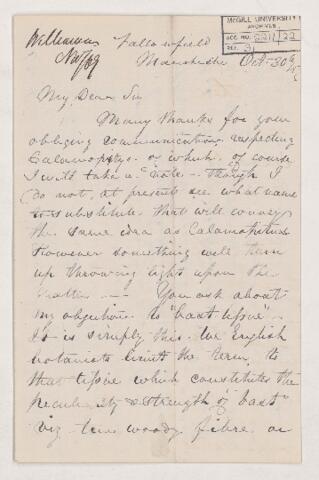 McGILL UNIVERSITY
ARCHIVES
ACC. NO. 2211/22
REF. 3
Williamson
Nov/69
Fallowfield
Manchester Oct 30th
My Dear Sir
Many thanks for your
obliging communication respecting
Calamopitys. of which, of course
I will take a note - though I
do not, at present see what name
to substitute that will convey
the same idea as Calamopitus
However something will turn
up throwing light upon the
matter. — You ask about
my objection to "bast tissue".
It is simply this. We English
botanists limit the term to
that tissue which constitutes the
peculiarity & strength of "bast"
viz true woody fibre or